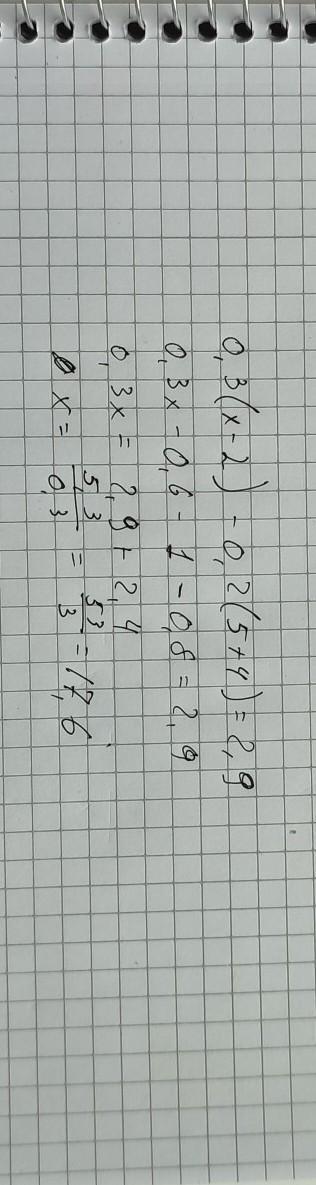 0,3(x-2)-0,2(5+4)=2,9
0,3x-0,6-1-0,8=2,9
0,3x=2,9+2,4
x=5,3/0,3=53/3=17,6